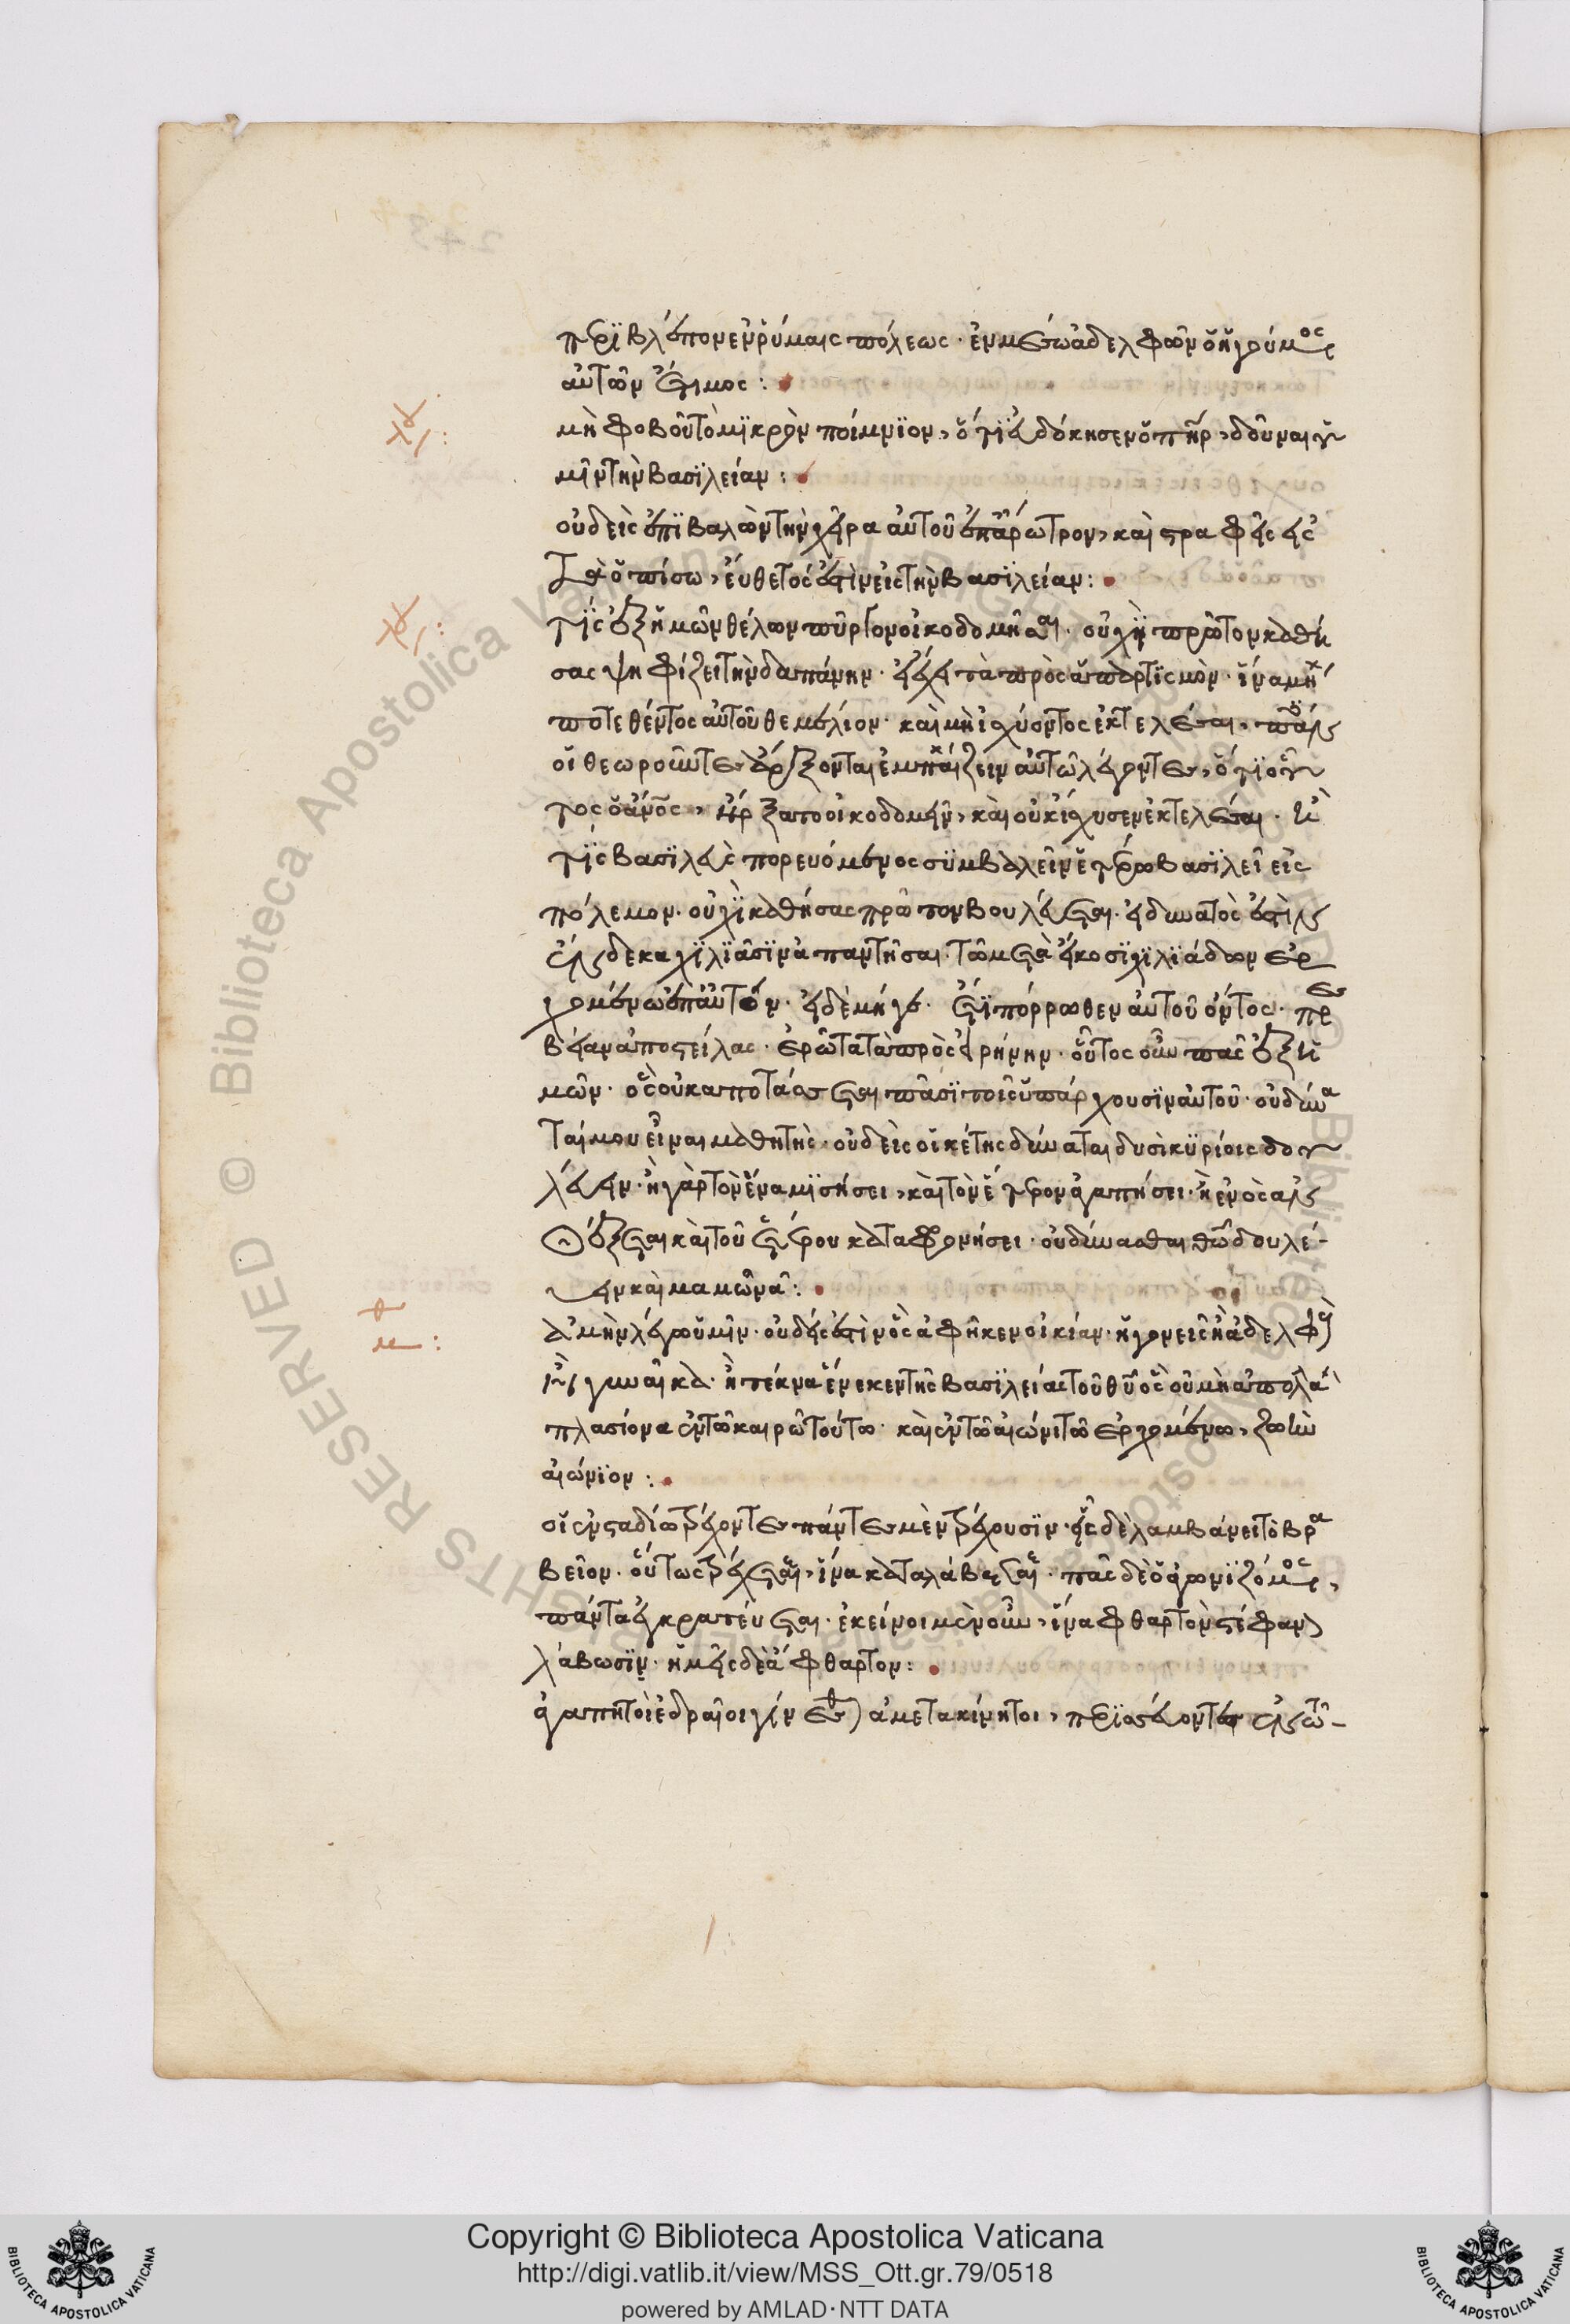 περιβλέπον ἐν ῥύμαις πόλεως· ἐν μέσω ἀδελφῶν ὁ ἡγούμενος
αὐτῶν ἔντιμος:
λου:
μὴ φοβοῦ τὸ μικρὸν ποίμνιον, ὅτι εὐδόκησεν ὁ πῆρ, δοῦναι ὑ
μῖν τὴν βασιλείαν:
οὐδεὶς ἐπιβαλὼν τὴν χεῖρα αὐτοῦ ἐπ' ἄρωτρον, καὶ στραφεὶς εἰς
τὰ ὀπίσω, εὔθετός ἐστιν εἰς τὴν βασιλείαν:
λου:
τίς ἐξ ὑμῶν θέλων πῦργον οἰκοδομῆσαι· οὐχὶ πρῶτον καθή
σας ψηφίζει τὴν δαπάνην· εἰ ἔχει τὰ πρὸς ἀπαρτισμὸν· ἵνα μή
ποτε θέντος αὐτοῦ θεμέλιον· καὶ μὴ ἰσχύοντος ἐκτελέσαι, πάντες
οἱ θεωροῦντες ἄρξονται ἐμπαίζειν αὐτῶ λέγοντες, ὅτι οὗ
τος ὁ ἄνος, ἤρξατο οἰκοδομεῖν, καὶ οὐκ ἴσχυσεν ἐκτελέσαι· ἢ
τίς βασιλεὺς πορευόμενος συμβαλεῖν ἑτέρω βασιλεῖ εἰς
πόλεμον· οὐχὶ καθήσας πρῶτον βουλεύεται· εἰ δυνατὸς ἐστὶν
ἐν δέκα χιλιάσιν ἀπαντῆσαι· τῶ μετὰ εἴκοσι χιλιάδων ἐρ
χομένω ἐπ' αὐτόν· εἰ δὲ μήγε· ἔτι πόρρωθεν αὐτοῦ ὄντος· πρεσ
βείαν ἀποστείλας· ἐρωτᾶ τὰ πρὸς εἰρήνην· οὕτος οὖν πᾶς ἐξ ὑ
μῶν· ὃς οὐκ ἀποτάσσεται πᾶσι τοῖς ὑπάρχουσιν αὐτοῦ· οὐ δύνα
ταί μου εἶναι μαθητὴς· οὐδεὶς οἰκέτης δύναται δυσὶ κυρίοις δου
λεύειν· ἢ γὰρ τὸν ἕνα μισήσει, καὶ τὸν ἕτερον ἀγαπήσει· ἢ ἑνὸς ἀν
θέξεται καὶ τοῦ ἑτέρου καταφρονήσει· οὐ δύνασθαι θῶ δουλέ-
υειν καὶ μαμωνᾶ:
μ:
ἀμὴν λέγω ὑμῖν· οὐδείς ἐστὶν ὃς ἀφῆκεν οἰκίαν· ἢ γονεῖς ἢ ἀδελφοὺς
ἢ γυναῖκα· ἢ τέκνα ἕνεκεν τῆς βασιλείας τοῦ θυ ὃς οὐ μὴ ἀπολαύ
πλασίονα ἐν τῶ καιρῶ τούτω· καὶ ἐν τῶ αἰώνι τῶ ἐρχομένω, ζωὴν
αἰώνιον:
οἱ ἐν σταδίω τρέχοντες πάντες μὲν τρέχουσιν· εἷς δὲ λαμβάνει τὸ βρα
βεῖον· οὕτως τρέχεται, ἵνα καταλάβηται· πᾶς δὲ ὁ ἀγωνιζόμενος,
πάντα ἐγκρατεύεται· ἐκεῖνοι μὲν οὖν, ἵνα φθαρτὸν στέφανον
λάβωσιν· ἡμεῖς δὲ ἄφθαρτον:
ἀγαπητοὶ ἑδραῖοι γίνεσθε ἀμετακίνητοι, περισσεύοντες ἐν τῶ-
Copyright © Biblioteca Apostolica Vaticana
http://digi.vatlib.it/view/MSS_Ott.gr.79/0518
powered by AMLAD·NTT DATA
BIBLIOTECA APOSTOLICA VATICANA
BIBLIOTECA APOSTOLICA VATICANA